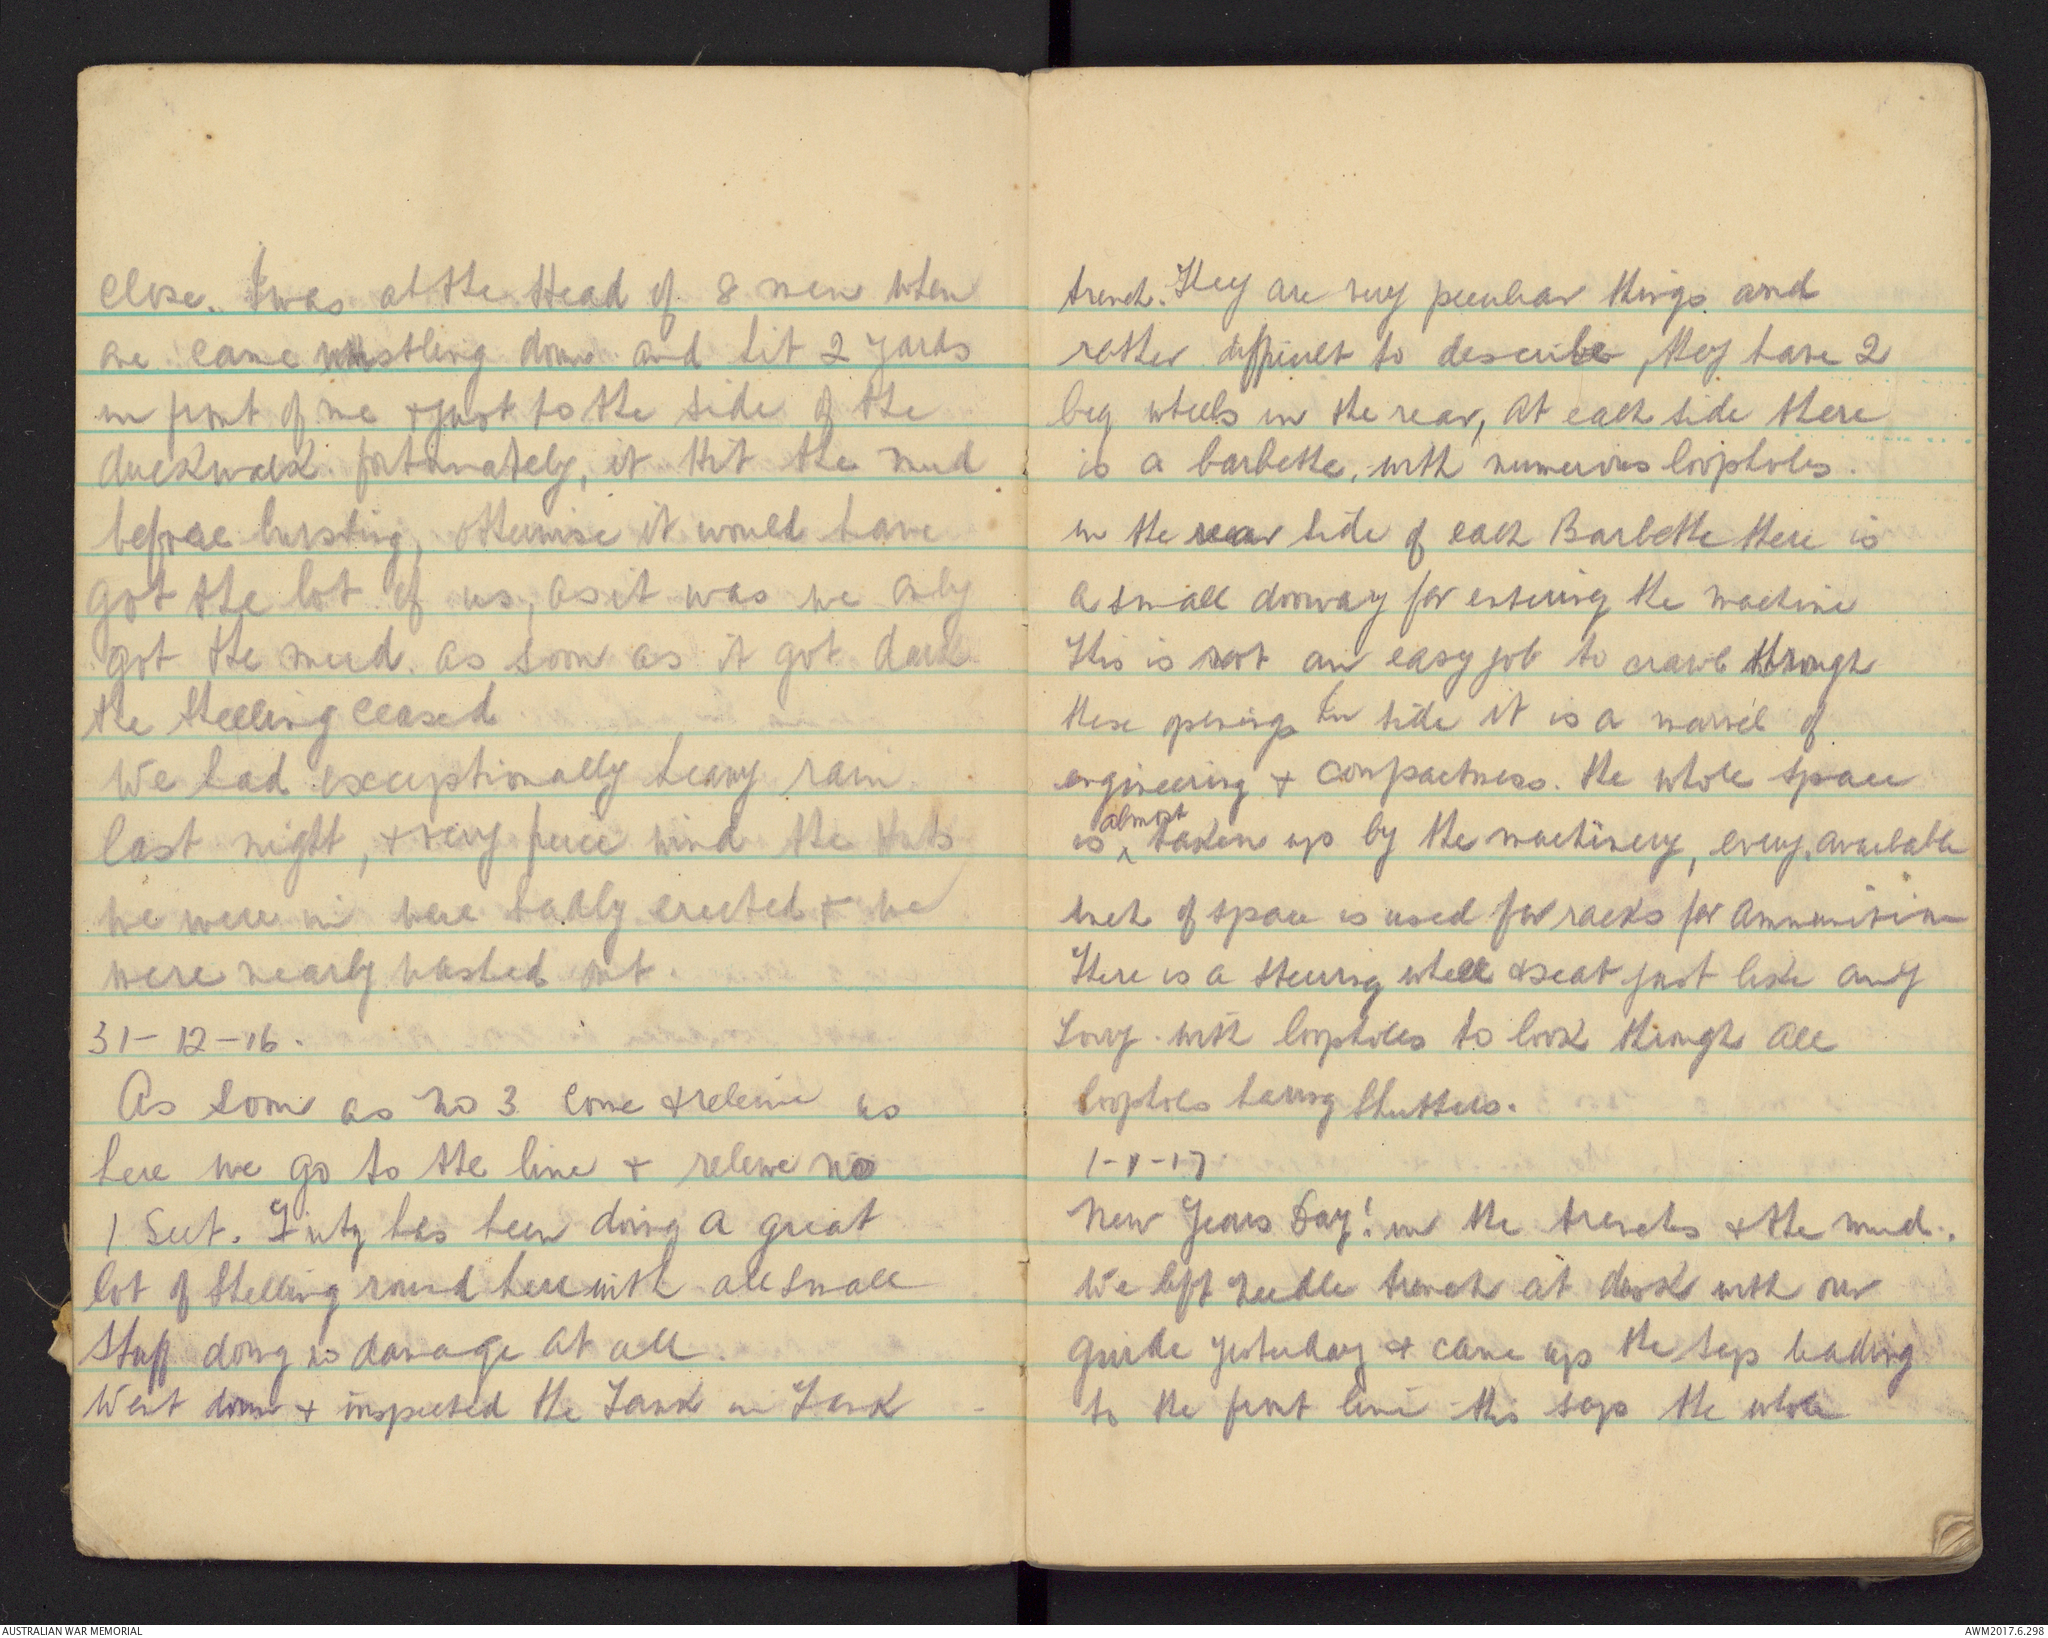 close. I was at the Head of 8 men when
one came whistling down and hit 2 yards
in front of me & just to the side of the
duckwalk. fortunately, it Hit the mud
before bursting, otherwise it would have
got the lot of us, as it was we only
got the mud. as soon as it got dark
the shelling ceased
We had exceptionally heavy rain
last night, & very feirce wind the Huts
we were in were badly erected & we
were nearly washed out.
31-12-16.
As soon as No 3 come & releive us
here we go to the line & releive No
1 Sect. Fritz has been doing a great
lot of Shelling round here with all small
stuff doing no damage at all.
Went down & inspected the Tank in Tank
trench. They are very peculiar things and
rather difficult to describe, they have 2
big wheels in the rear, At each side there
is a barbette, with numerous loopholes.
in the rear side of each Barbette there is
a small doorway for entering the machine
This is not an easy job to crawl through
these openings In side it is a marvel of
engineering & compactness. the whole space
is almost taken up by the machinery, every available
inch of space is used for racks for Ammunition
There is a steering wheel & seat just like any
Lorry. with loopholes to look through all
loopholes having Shutters.
1-1-17.
New Years Day! in the trenches & the mud.
We left Needle trench at dusk with our
guide yesterday & came up the sap leading
to the front line this sap the whole
AUSTRALIAN WAR MEMORIAL
AWM2017.6.298